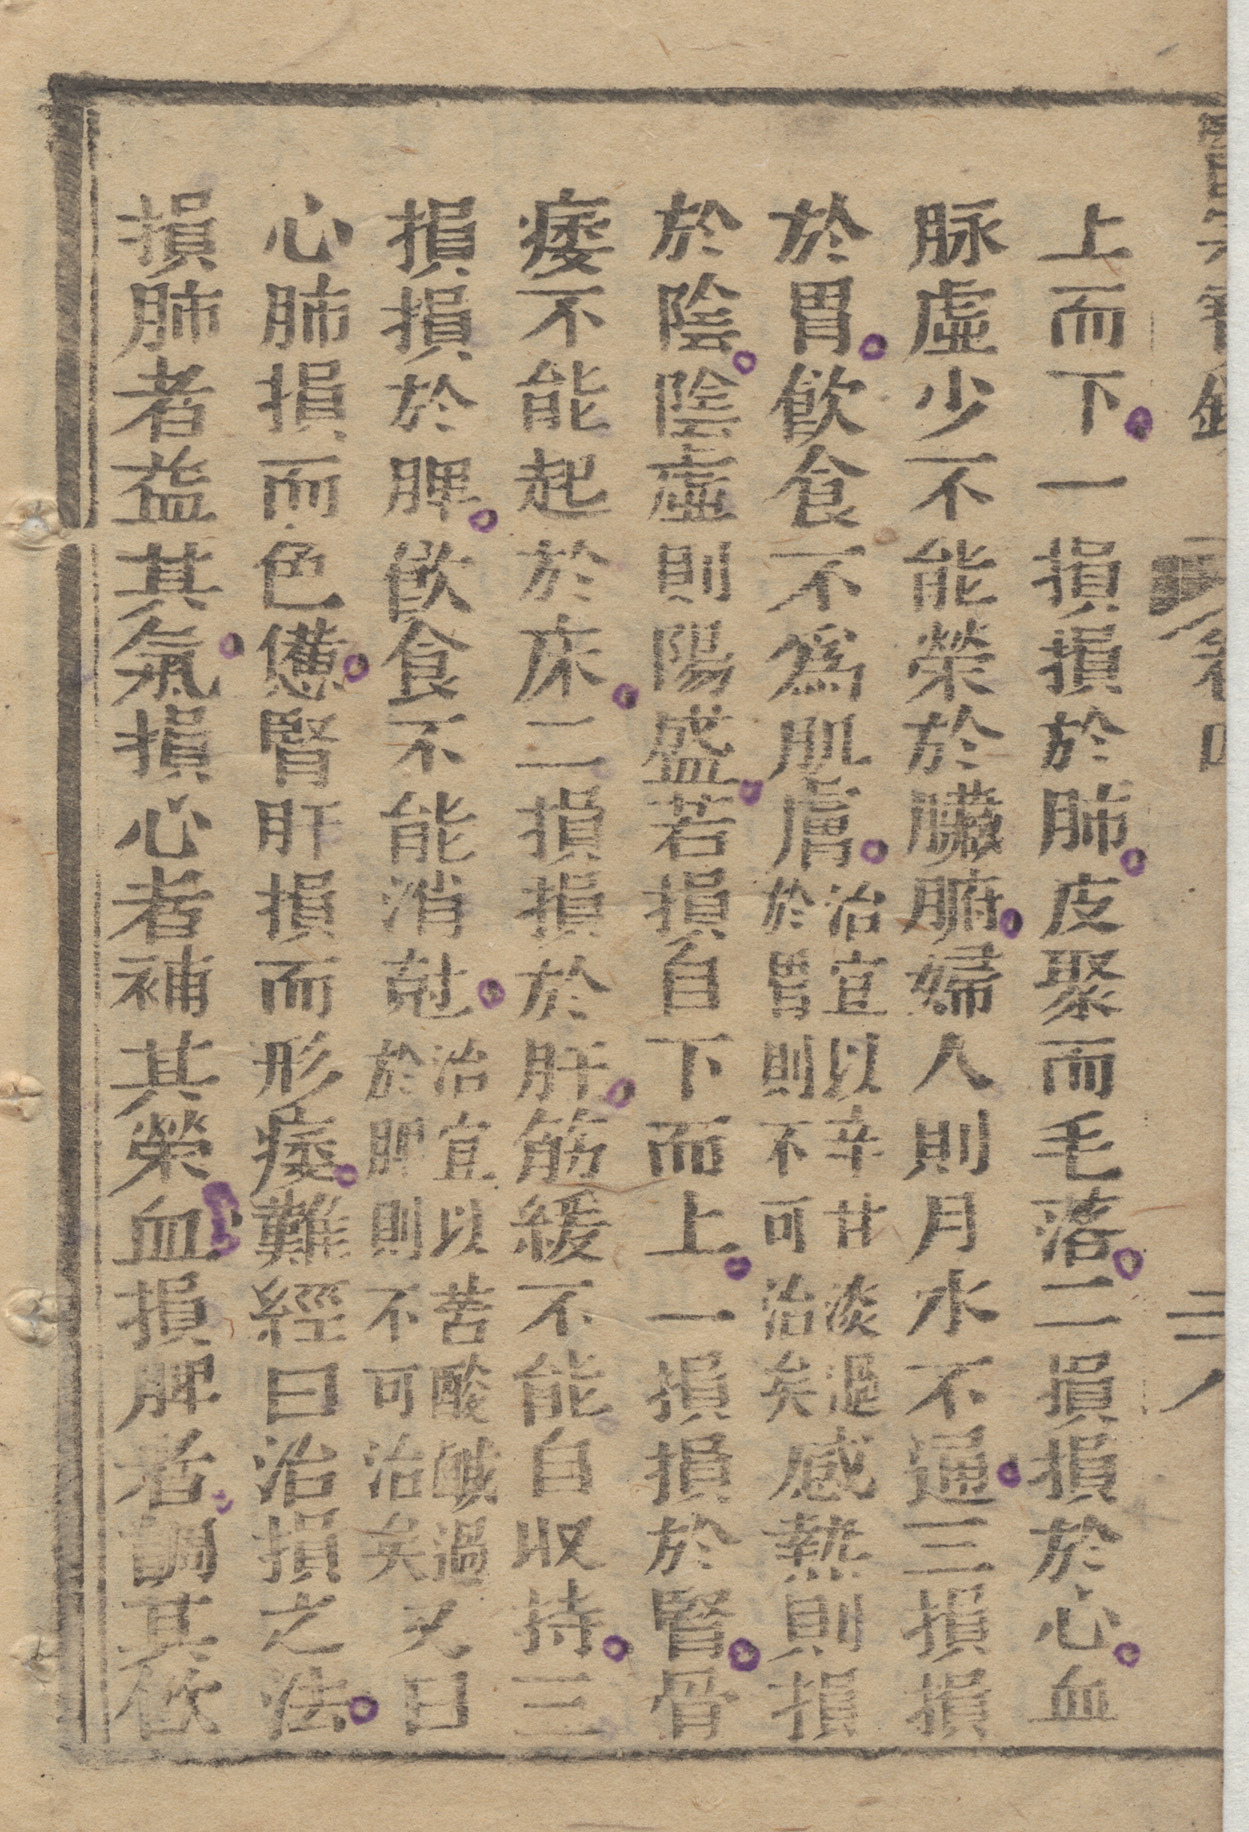 上而下一損損於肺皮聚而毛落二損損於心血
脉虛少不能榮於臟腑婦人則月水不通三損損
於胃飲食不爲肌膚治宜以辛甘淡過於胃則不可治矣感熱則損
於陰陰虛則陽盛若損自下而上一損損於腎骨
痿不能起於床二損損於肝筋緩不能自収持三
損損於脾飲食不能消尅治宜以苦酸鹹過於脾則不可治矣又曰
心肺損而色僿腎肝損而形痿難經曰治損之法
損肺者益其氣損心者補其榮血損脾者調其飲